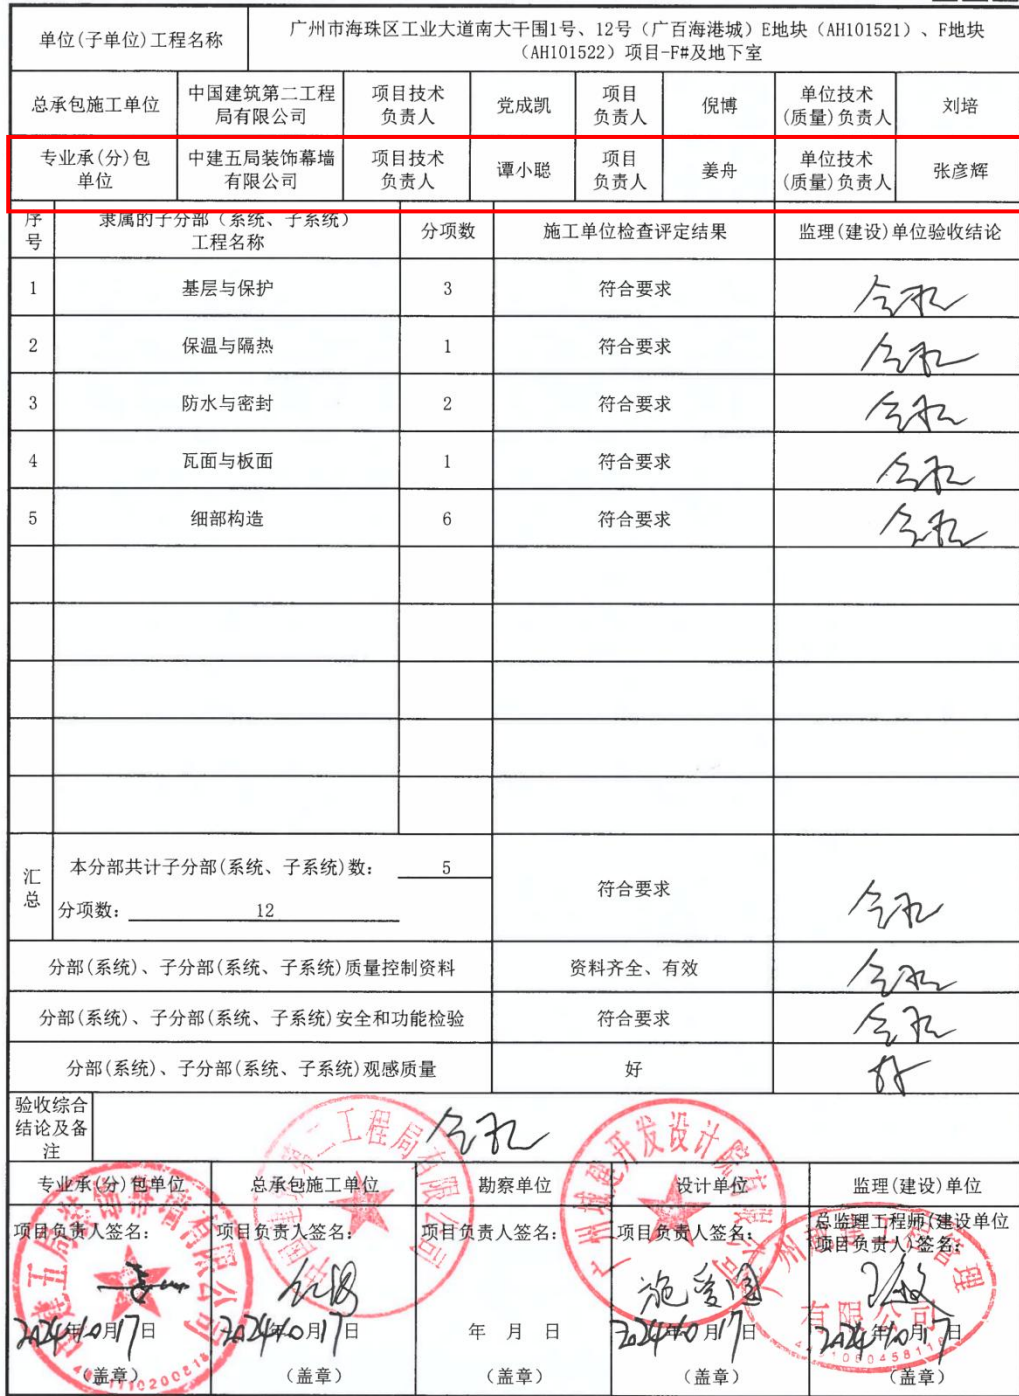 单位(子单位)工程名称
广州市海珠区工业大道南大干围1号、12号（广百海港城）E地块（AH101521）、F地块
（AH101522）项目-F#及地下室
总承包施工单位
中国建筑第二工程
局有限公司
项目技术
负责人
党成凯
项目
负责人
倪博
单位技术
(质量)负责人
刘培
专业承(分)包
单位
中建五局装饰幕墙
有限公司
项目技术
负责人
谭小聪
项目
负责人
姜舟
单位技术
(质量)负责人
张彦辉
序
号
隶属的子分部（系统、子系统）
工程名称
分项数
施工单位检查评定结果
监理(建设)单位验收结论
1 基层与保护 3 符合要求 合格
2 保温与隔热 1 符合要求 合格
3 防水与密封 2 符合要求 合格
4 瓦面与板面 1 符合要求 合格
5 细部构造 6 符合要求 合格
汇
总
本分部共计子分部(系统、子系统)数： 5
分项数： 12
符合要求 合格
分部(系统)、子分部(系统、子系统)质量控制资料 资料齐全、有效 合格
分部(系统)、子分部(系统、子系统)安全和功能检验 符合要求 合格
分部(系统)、子分部(系统、子系统)观感质量 好 好
验收综合
结论及备
注
合格
专业承(分)包单位 总承包施工单位 勘察单位 设计单位 监理(建设)单位
项目负责人签名： 项目负责人签名： 项目负责人签名： 项目负责人签名：
总监理工程师(建设单位
项目负责人)签名：
2024年10月17日 2024年10月17日 年 月 日 2024年10月17日 2024年10月17日
(盖章) (盖章) (盖章) (盖章) (盖章)